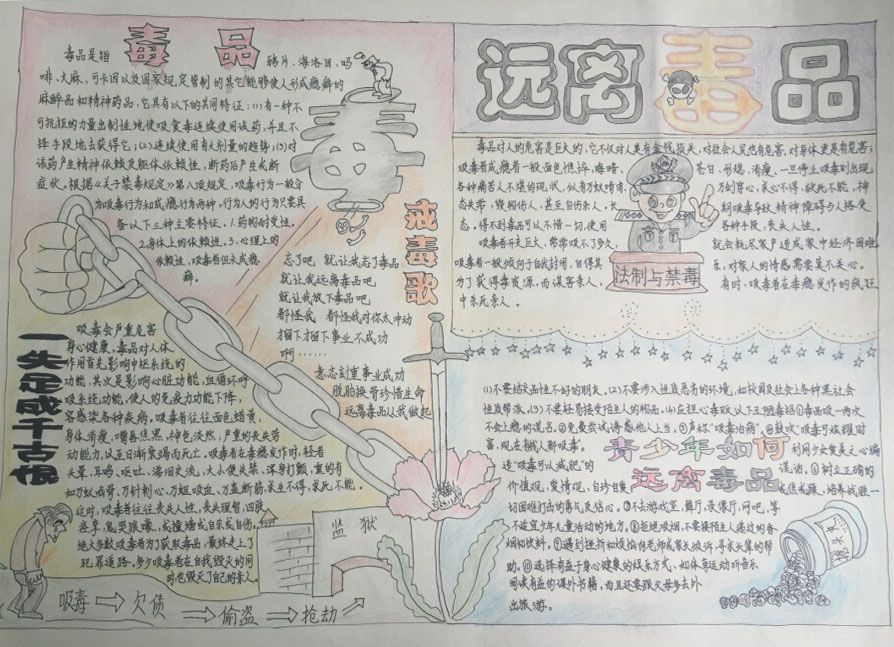 毒品
毒品是指 鸦片、海洛因、吗
啡、大麻、可卡因以及国家规定管制的其它能够使人形成瘾癖的
麻醉品和精神药品，它具有以下的共同特征：(1)有一种不
可抗拒的力量出制性地使吸食毒连续使用该药，并且不
择手段地去获得它；(2)连续使用有大剂量的趋势；(3)对
该药产生精神依赖及躯体依赖性，断药后产生戒断
症状。根据《关于禁毒规定》第八项规定，吸毒行为一般分
为吸毒行为和成瘾行为两种，行为人的行为只要具
备以下三种主要特征。1.药物耐受性。
2.身体上的依赖性。3.心理上的
依赖性，吸毒者但未成瘾
癖。
毒
戒毒歌
忘了吧 就让我忘了毒品
就让我远离毒品吧
就让我放下毒品吧
都怪我 都怪我对你太冲动
才留下才留下事业不成功
啊……
意志刻重事业成功
脱胎换骨珍惜生命
远离毒品从我做起
一失足成千古恨
吸毒会严重危害
身心健康，毒品对人体
作用首先影响中枢系统的
功能，其次是影响心脏功能，血循环呼
吸系统功能，使人的免疫力功能下降，
容感染各种疾病。吸毒者往往面色蜡黄，
身体消瘦，嘴唇焦黑，神色淡然，严重的丧失劳
动能力，以至日渐衰竭而死亡。吸毒者在毒瘾发作时，轻者
头晕、耳鸣、呕吐、涕泪交流，大小便失禁、浑身打颤，重的有
如万蚁啃骨，万针刺心，万蛆吸血，万盖断筋，求生不得，求死不能。
这时，吸毒者往往丧失人性，丧失理智，四肢
痉挛，鬼哭狼嚎，或撞墙或自杀或自伤。
绝大多数吸毒者为了获取毒品，最终走上了
犯罪道路，多少吸毒者在自我毁灭的同
时，也毁灭了自己的亲人。
监狱
吸毒→欠债→偷盗→抢劫
远离毒品
毒品对人的危害是巨大的，它不仅对人类有金钱损失，对社会人民也有危害；对身体更是有危害；
吸毒者成瘾者一般面色憔悴，晦暗、苍白、形瘦、消瘦，一旦停止吸毒则出现
各种痛苦不堪的现状，似有万蚁啃骨，万剑穿心，求心不得，欲死不能，神
态失常，毁伺伤人，甚至自伤亲人。长期吸毒导致精神障碍与人格变
态。得不到毒品可以不惜一切，使用各种手段，丧失人性。
吸毒者开支巨大，常常吸不了多久，就会耗尽家产造成家中经济困难
吸毒者一般倾向于自我封闭，自得其乐，对家人的情感需要莫不关心。
为了获得毒资源，而谋害亲人，有时，吸毒者在毒瘾发作的疯狂
中杀死亲人。
法制与禁毒
(1)不要结交品性不好的朋友。(2)不要涉入性质恶害的环境，如校园及社会上各种黑社会
性质帮派。(3)不要轻易接受陌生人的物品。(4)应担心毒贩以下五种
不会上瘾的谎言。②免费尝试诱惑他人上当。③声称“吸毒治病”。④鼓吹“吸毒可炫耀财
富，现在有钱人都吸毒。利用少女爱美之心编
造“吸毒可以减肥”的谎话。⑥树立正确的
价值观，爱情观，自珍自爱
青少年如何
远离毒品
切困难打击的勇气及信心。⑦不去游戏室、舞厅、录像厅、网吧，等
不适宜少年儿童活动的地方。⑧拒绝吸烟，不要接陌生人递过的香
烟和饮料。⑨遇到挫折和烦恼向老师或家长倾诉，寻求大家的帮
助。⑩选择有益于身心健康的娱乐方式，如体育运动听音乐
阅读有益的课外书籍，而且还要跟父母多去外
出旅游。